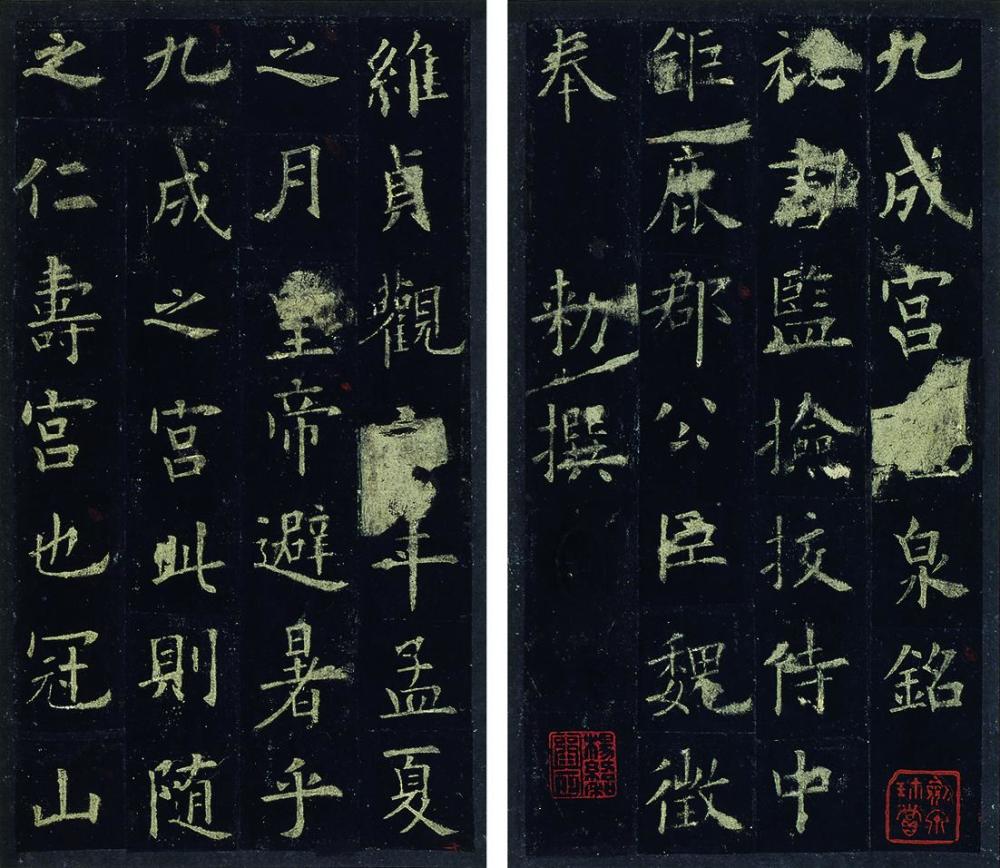 九成宮泉銘
祕書監撿挍侍中
鉅鹿郡公臣魏徵
奉 勑撰
維貞觀年孟夏
之月皇帝避暑乎
九成之宮此則隨
之仁壽宮也冠山